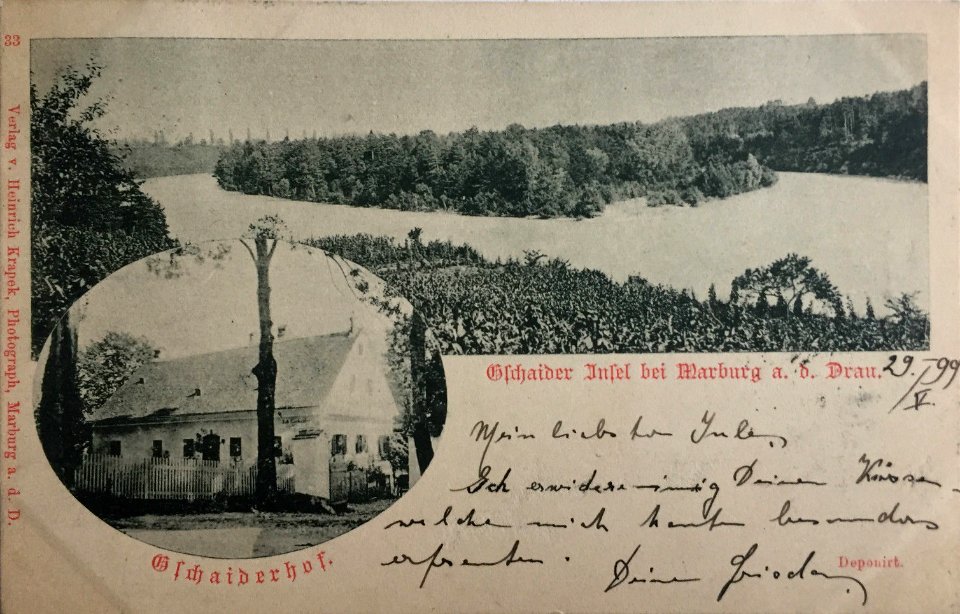 33
Verlag v. Heinrich Krapek, Photograph, Marburg a. d. D.
Gschaider Insel bei Marburg a. d. Drau.
29./V. 99
Mein liebster
Ich erwidere innig Deinen
welche mich heute besonders
erfreuten. Deine
Gschaiderhof.
Deponirt.